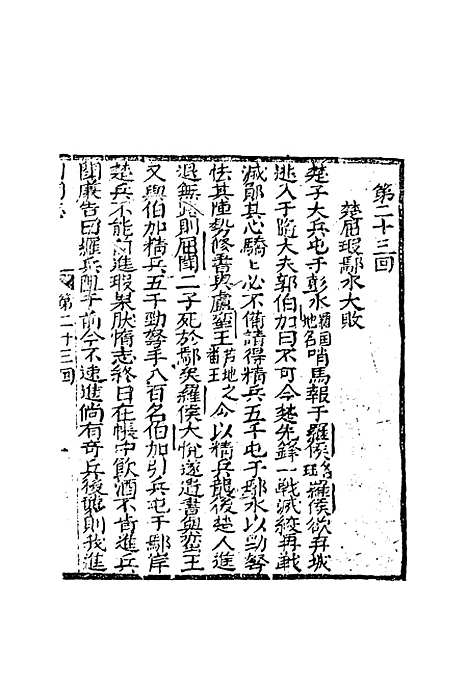 第二十三回
楚屈瑕鄢水大敗
楚子大兵屯于彭水羅国地名哨馬報于羅侯名珏羅侯欲弃城
逃入于隨大夫郭伯加曰不可今楚先鋒一戰滅絞再戰
滅鄖其心驕已必不備請得精兵五千屯于鄢水以勁弩
怯其陣勢修書與盧蛮王芦地之番王令以精兵襲後楚人進
退無路則屈閗二子死於鄢矣羅侯大悅遂遣書與蛮王
又與伯加精兵五千勁弩手八百名伯加引兵屯于鄢岸
楚兵不能前進瑕果肤惰志終日在帳中飲酒不肯進兵
閗廉告曰羅兵阻于前今不速進倘有奇兵後襲則我進
第二十三回